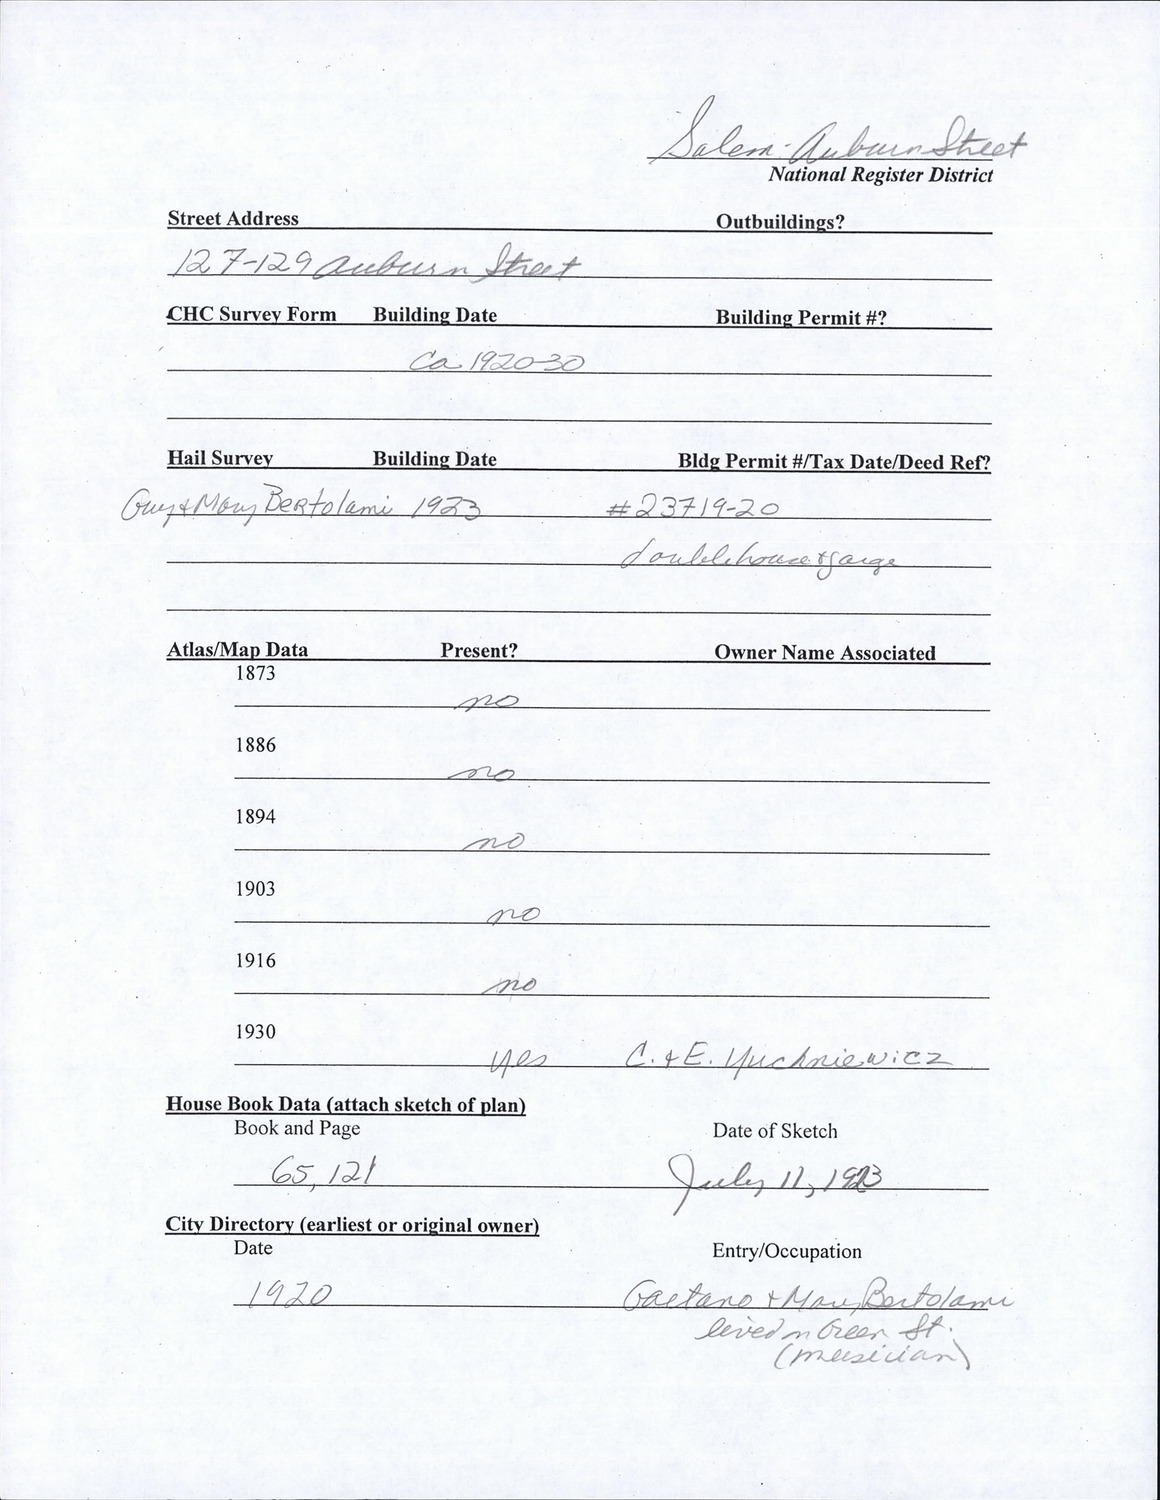 Salem-Auburn Street
National Register District
Street Address Outbuildings?
127-129 Auburn Street
CHC Survey Form Building Date Building Permit #?
Ca 1920-30
Hail Survey Building Date Bldg Permit #/Tax Date/Deed Ref?
Guy & Mary Bertolami 1923 #23719-20
double house & garge
Atlas/Map Data Present? Owner Name Associated
1873
no
1886
no
1894
no
1903
no
1916
no
1930
yes C. & E. Yuchniewicz
House Book Data (attach sketch of plan)
Book and Page Date of Sketch
65, 121 July 11, 1923
City Directory (earliest or original owner)
Date Entry/Occupation
1920 Gaetano & Mary Bertolami
lived on Green St.
(musician)